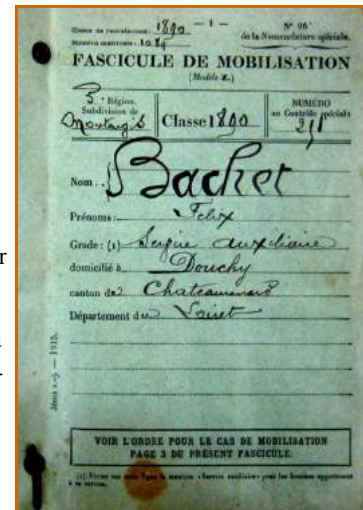 Classe de recrutement : 1890 — 1 — N° 96
Numéro matricule : 1089 de la Nomenclature spéciale.
FASCICULE DE MOBILISATION
(Modèle z.)
5e Région.
Subdivision de
Montargis
Classe 1890
NUMÉRO
au Contrôle spécial
211
Nom .. Bachet
Prénoms : Felix
Grade : (1) Service auxiliaire
domicilié à Douchy
canton de Chateaurenard
Département du Loiret
— 1915.
VOIR L'ORDRE POUR LE CAS DE MOBILISATION
PAGE 3 DU PRÉSENT FASCICULE.
(1) Porter sur cette ligne la mention « Service auxiliaire » pour les hommes appartenant
à ce service.
r